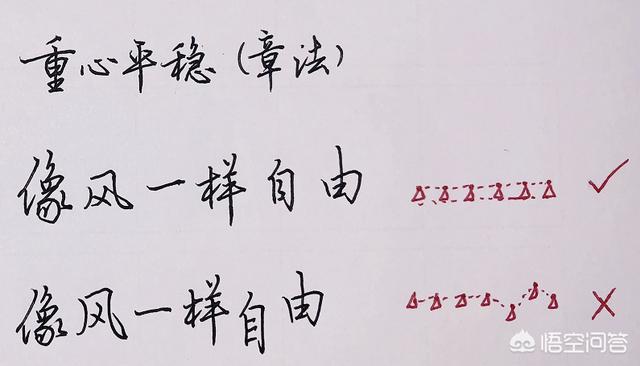 重心平稳(章法)
像风一样自由
像风一样自由
悟空问答